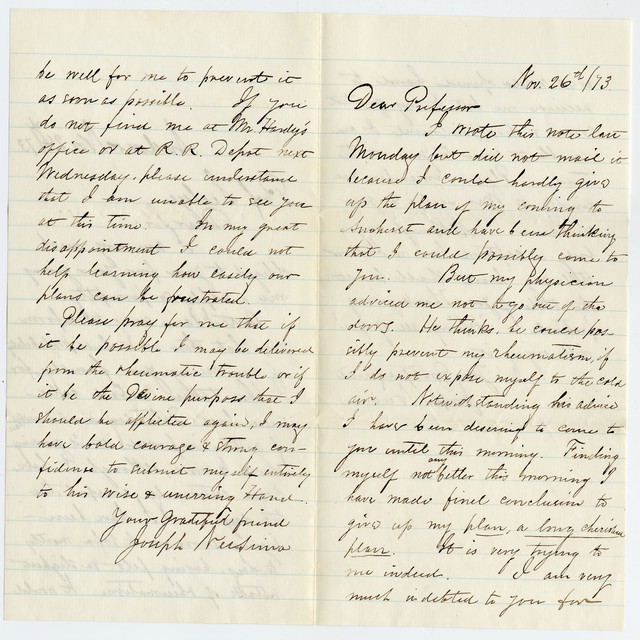 be well for me to prevent it
as soon as possible. If you
do not find me at Mr. Hardy's
office or at R. R. Depot next
Wednesday, please understand
that I am unable to see you
at this time. In my great
disappointment I could not
help learning how easily our
plans can be frustrated.
Please pray for me that if
it be possible I may be delivered
from the rheumatic trouble or if
it be the Devine purpose that I
should be afflicted again, I may
have bold courage & strong con-
fidence to submit myself entirely
to his wise & unerring Hand.
Your grateful friend
Joseph Neesima
Nov. 26th/73
Dear Professor
I wrote this note last
Monday but did not mail it
because I could hardly give
up the plan of my coming to
Amherst and have been thinking
that I could possibly come to
you. But my physician
adviced me not to go out of the
doors. He thinks, he could pos-
sibly prevent my rheumatism, if
I do not expose myself to the cold
air. Notwithstanding his advice
I have been desiring to come to
you until this morning. Finding
myself not any better this morning I
have made final conclusion to
give up my plan, a long cherished
plan. It is very trying to
me indeed. I am very
much indebted to you for